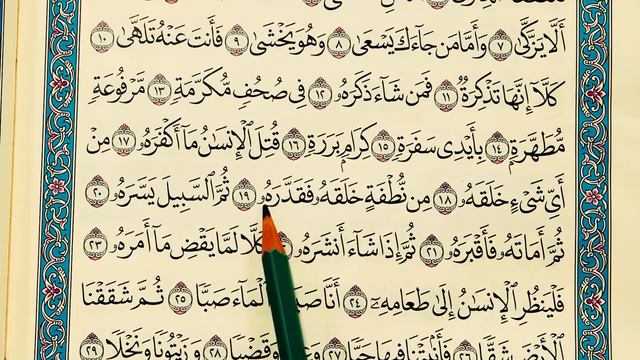 أَلَّا يَزَّكَّىٰ ٧ وَأَمَّا مَن جَآءَكَ يَسْعَىٰ ٨ وَهُوَ يَخْشَىٰ ٩ فَأَنتَ عَنْهُ تَلَهَّىٰ ١٠
كَلَّآ إِنَّهَا تَذْكِرَةٌ ١١ فَمَن شَآءَ ذَكَرَهُۥ ١٢ فِى صُحُفٍ مُّكَرَّمَةٍ ١٣ مَّرْفُوعَةٍ
مُّطَهَّرَةٍۭ ١٤ بِأَيْدِى سَفَرَةٍ ١٥ كِرَامٍۭ بَرَرَةٍ ١٦ قُتِلَ ٱلْإِنسَٰنُ مَآ أَكْفَرَهُۥ ١٧ مِنْ
أَىِّ شَىْءٍ خَلَقَهُۥ ١٨ مِن نُّطْفَةٍ خَلَقَهُۥ فَقَدَّرَهُۥ ١٩ ثُمَّ ٱلسَّبِيلَ يَسَّرَهُۥ ٢٠
ثُمَّ أَمَاتَهُۥ فَأَقْبَرَهُۥ ٢١ ثُمَّ إِذَا شَآءَ أَنشَرَهُۥ كَلَّا لَمَّا يَقْضِ مَآ أَمَرَهُۥ ٢٣
فَلْيَنظُرِ ٱلْإِنسَٰنُ إِلَىٰ طَعَامِهِۦٓ ٢٤ أَنَّا ٱلْمَآءَ صَبًّا ٢٥ ثُمَّ شَقَقْنَا
ٱلْأَرْضَ شَقًّا ٢٦ فَأَنۢبَتْنَا فِيهَا حَبًّا ٢٧ وَقَضْبًا ٢٨ وَزَيْتُونًا وَنَخْلًا ٢٩